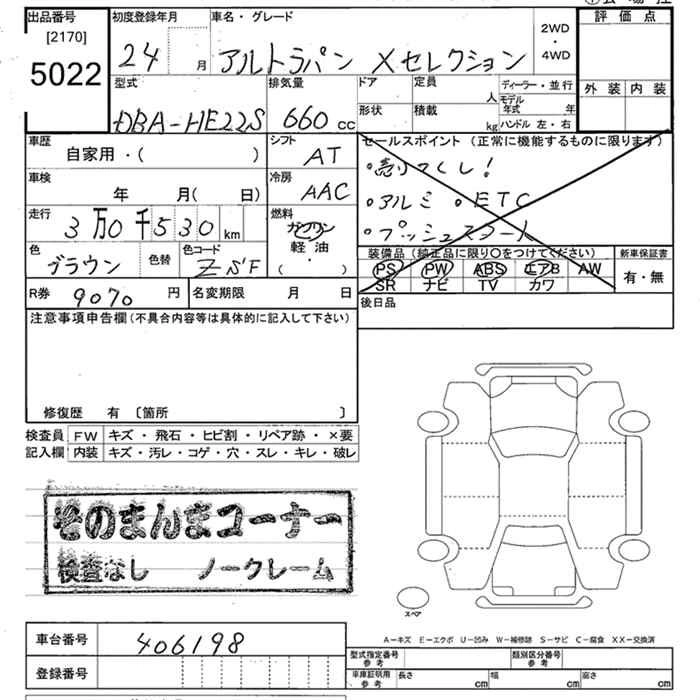 出品番号
[2170]
5022
初度登録年月
24 月
車名・グレード
アルトラパン Xセレクション
2WD
・
4WD
評価点
外装 内装
型式
DBA-HE22S
排気量
660 cc
ドア
形状
定員
人
積載
kg
ディーラー・並行
モデル年式 年
ハンドル 左・右
車歴
自家用・( )
シフト
AT
セールスポイント (正常に機能するものに限ります)
・売りつくし!
・アルミ ・ETC
・プッシュスタート
車検
年 月( 日)
冷房
AAC
走行
3万0千530km
燃料
ガソリン
軽・油
( )
色
ブラウン
色替
色コード
ZSF
装備品 (純正品に限り○をつけてください)
PS PW ABS エアB AW
SR ナビ TV カワ
新車保証書
有・無
R券 9070 円
名変期限 月 日
後日品
注意事項申告欄 (不具合内容等は具体的に記入して下さい)
修復歴 有 〔箇所 〕
検査員 FW キズ・飛石・ヒビ割・リペア跡・×要
記入欄 内装 キズ・汚レ・コゲ・穴・スレ・キレ・破レ
そのまんまコーナー
検査なし ノークレーム
スペア
車台番号 406198
登録番号
A-キズ E-エクボ U-凹み W-補修跡 S-サビ C-腐食 XX-交換済
型式指定番号
参考
類別区分番号
参考
車庫証明用
参考
長さ cm 幅 cm 高さ cm